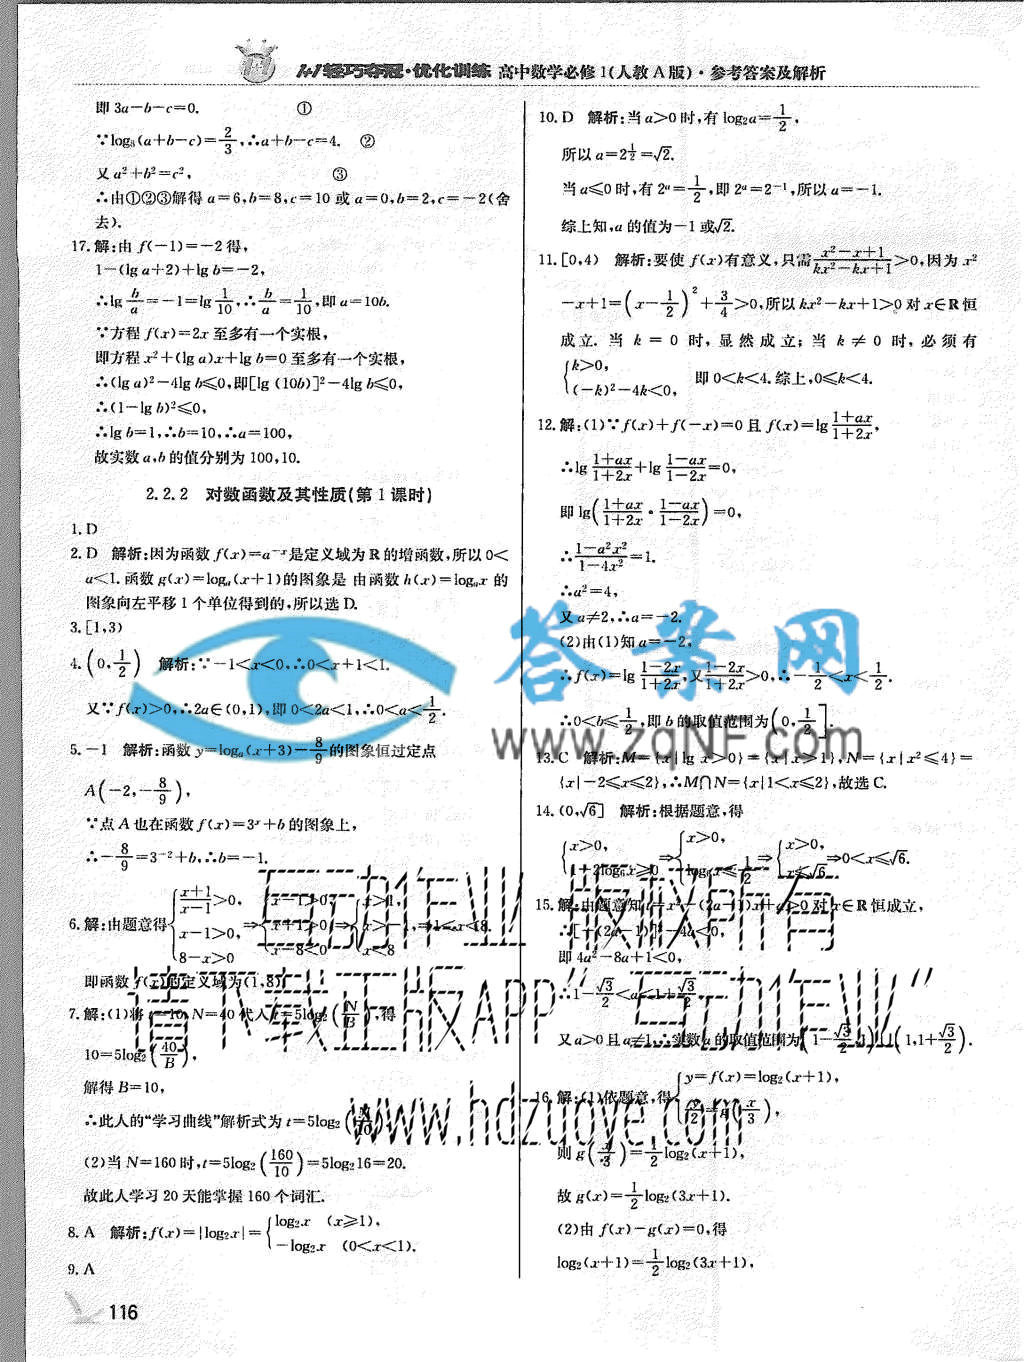 1+1轻巧夺冠·优化训练 高中数学必修1(人教A版)·参考答案及解析
即3a-b-c=0. ①
∵log₈(a+b-c)=2/3,∴a+b-c=4. ②
又a²+b²=c², ③
∴由①②③解得a=6,b=8,c=10或a=0,b=2,c=-2(舍
去).
17.解:由f(-1)=-2得,
1-(lg a+2)+lg b=-2,
∴lg b/a=-1=lg 1/10,∴b/a=1/10,即a=10b.
∵方程f(x)=2x至多有一个实根,
即方程x²+(lg a)x+lg b=0至多有一个实根,
∴(lg a)²-4lg b≤0,即[lg (10b)]²-4lg b≤0,
∴(1-lg b)²≤0,
∴lg b=1,∴b=10,∴a=100,
故实数a,b的值分别为100,10.
2.2.2 对数函数及其性质(第1课时)
1.D
2.D 解析:因为函数f(x)=a⁻ˣ是定义域为R的增函数,所以0<
a<1.函数g(x)=logₐ(x+1)的图象是由函数h(x)=logₐx的
图象向左平移1个单位得到的,所以选D.
3.[1,3)
4.(0,1/2) 解析:∵-1<x<0,∴0<x+1<1.
又∵f(x)>0,∴2a∈(0,1),即0<2a<1,∴0<a<1/2.
5.-1 解析:函数y=logₐ(x+3)-8/9的图象恒过定点
A(-2,-8/9),
∵点A也在函数f(x)=3ˣ+b的图象上,
∴-8/9=3⁻²+b,∴b=-1.
6.解:由题意得{(x+1)/(x-1)>0, x-1>0, 8-x>0 ⇒{x-1>0, x+1>0, x-8<0 ⇒{x>1, x>-1, x<8 ⇒1<x<8.
即函数f(x)的定义域为(1,8).
7.解:(1)将t=10,N=40代入t=5log₂(N/B),得
10=5log₂(40/B),
解得B=10,
∴此人的“学习曲线”解析式为t=5log₂(N/10).
(2)当N=160时,t=5log₂(160/10)=5log₂16=20.
故此人学习20天能掌握160个词汇.
8.A 解析:f(x)=|log₂x|={log₂x (x≥1), -log₂x (0<x<1).
9.A
116
10.D 解析:当a>0时,有log₂a=1/2,
所以a=2^(1/2)=√2.
当a≤0时,有2ᵃ=1/2,即2ᵃ=2⁻¹,所以a=-1.
综上知,a的值为-1或√2.
11.[0,4) 解析:要使f(x)有意义,只需(x²-x+1)/(kx²-kx+1)>0,因为x²
-x+1=(x-1/2)²+3/4>0,所以kx²-kx+1>0对x∈R恒
成立.当k=0时,显然成立;当k≠0时,必须有
{k>0, (-k)²-4k<0, 即0<k<4.综上,0≤k<4.
12.解:(1)∵f(x)+f(-x)=0且f(x)=lg (1+ax)/(1+2x),
∴lg (1+ax)/(1+2x)+lg (1-ax)/(1-2x)=0,
即lg((1+ax)/(1+2x)·(1-ax)/(1-2x))=0,
∴(1-a²x²)/(1-4x²)=1.
∴a²=4,
又a≠2,∴a=-2.
(2)由(1)知a=-2,
∴f(x)=lg (1-2x)/(1+2x),又(1-2x)/(1+2x)>0,∴-1/2<x<1/2.
∴0<b≤1/2,即b的取值范围为(0,1/2].
13.C 解析:M={x|lg x>0}={x|x>1},N={x|x²≤4}=
{x|-2≤x≤2},∴M∩N={x|1<x≤2},故选C.
14.(0,√6] 解析:根据题意,得
{x>0, 1-2log₆x≥0 ⇒{x>0, log₆x≤1/2 ⇒{x>0, x≤√6 ⇒0<x≤√6.
15.解:由题意知 对x∈R恒成立,
∴
即4a²-8a+1<0,
∴1-√3/2<a<1+√3/2.
又a>0且a≠1,∴实数a的取值范围为(1-√3/2,1)∪(1,1+√3/2).
16.解:(1)依题意,得{y=f(x)=log₂(x+1), y/2=g(x/3),
则g(x/3)=1/2 log₂(x+1),
故g(x)=1/2 log₂(3x+1).
(2)由f(x)-g(x)=0,得
log₂(x+1)=1/2 log₂(3x+1),
答案网
www.zqNF.com
互动作业 版权所有
请下载正版APP“互动作业”
www.hdzuoye.com